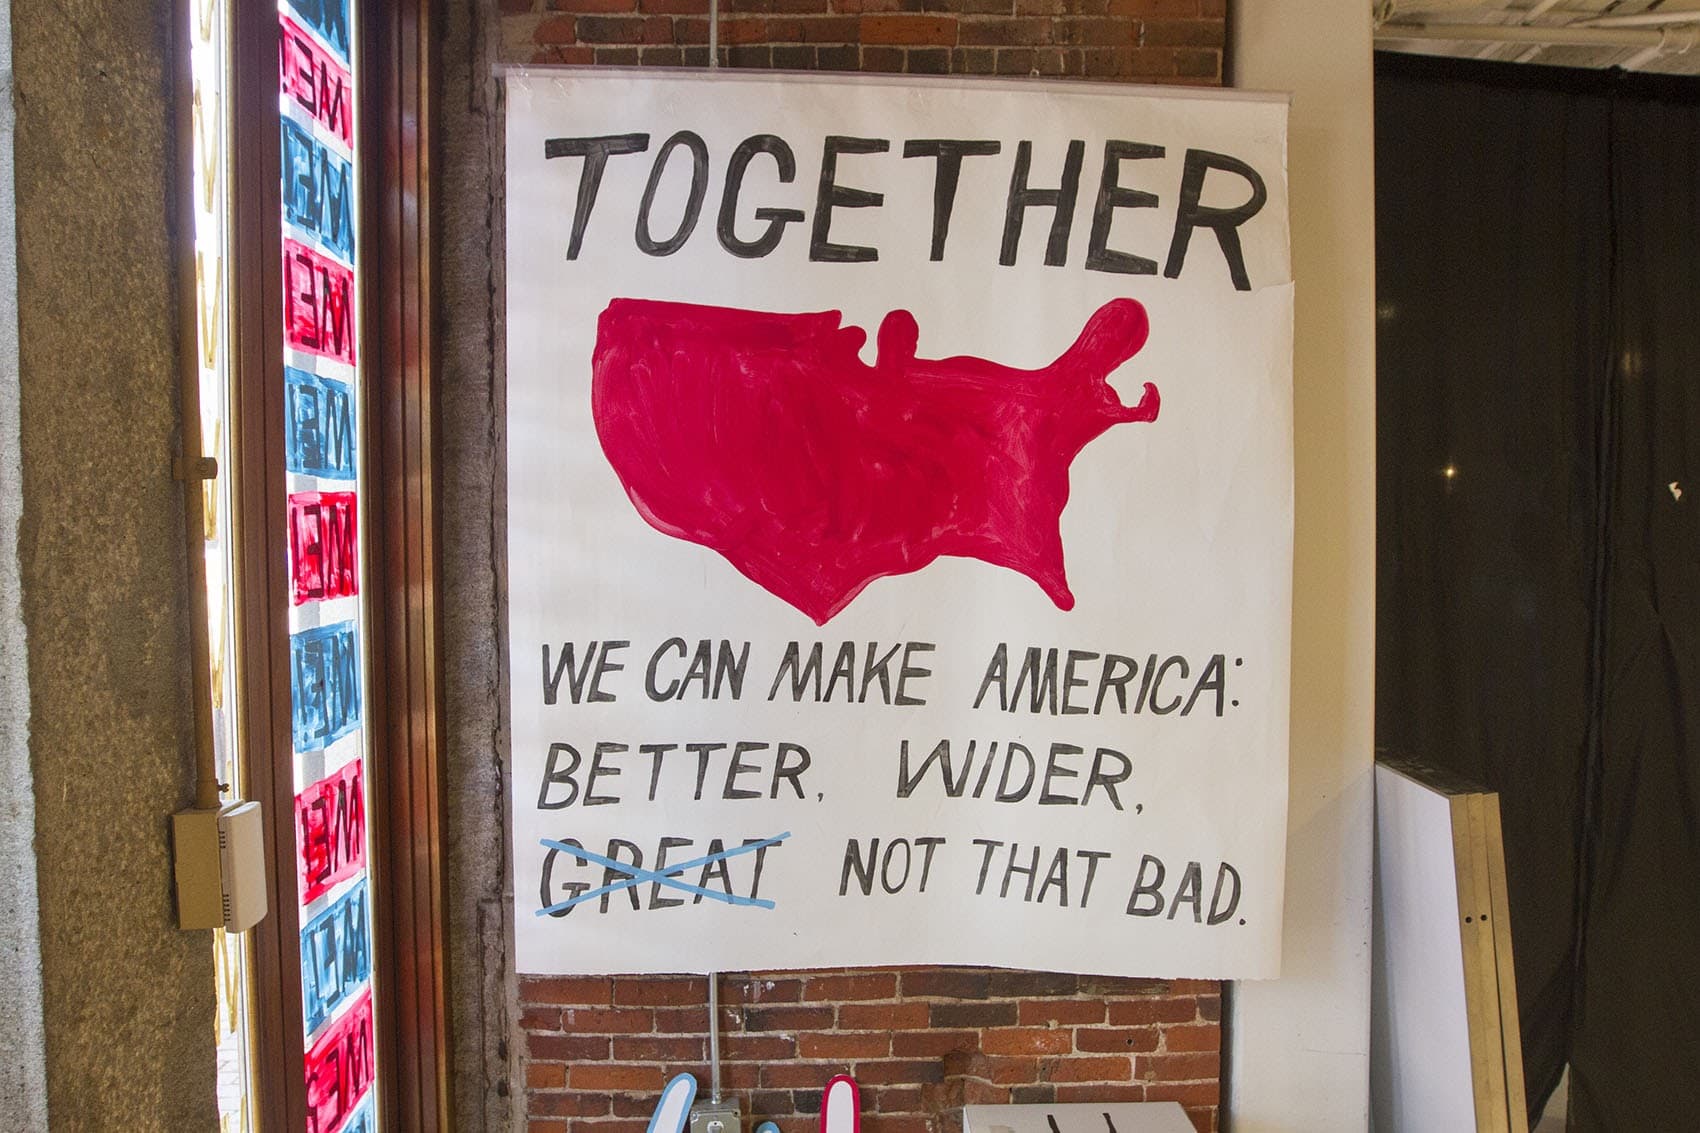 TOGETHER
WE CAN MAKE AMERICA:
BETTER, WIDER,
GREAT NOT THAT BAD.
ME!
ME!
ME!
ME!
ME!
ME!
ME!
ME!
ME!